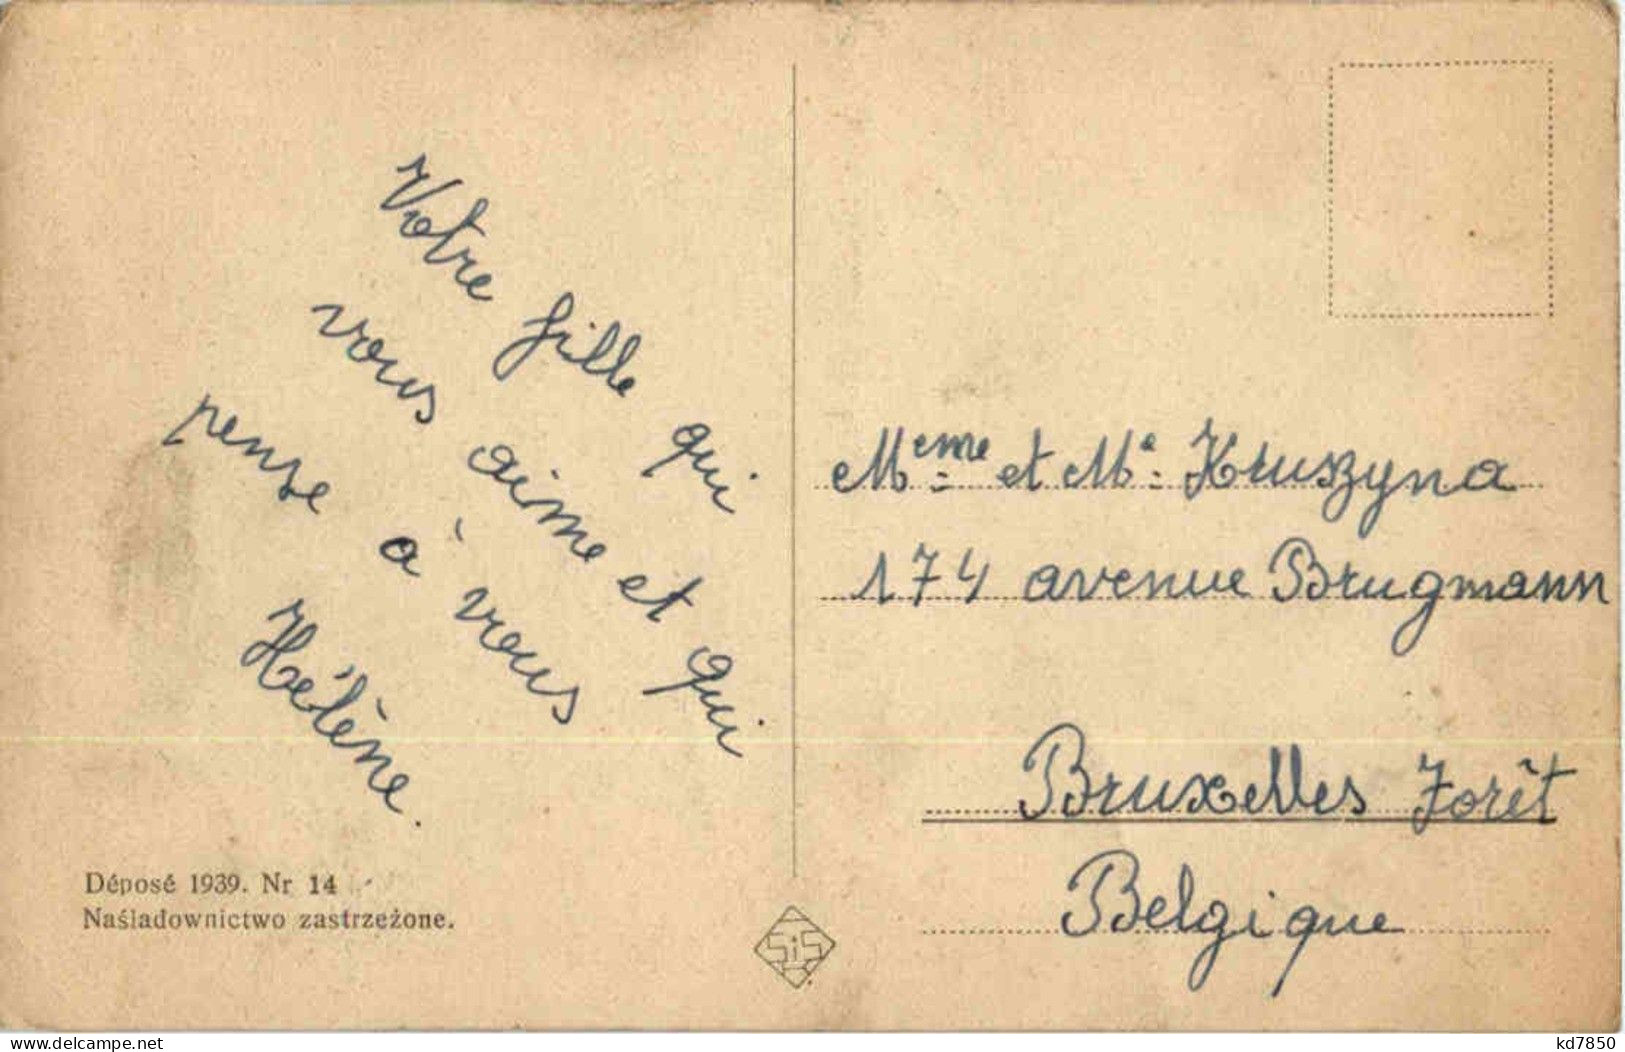 Votre fille qui
vous aime et qui
pense à vous
Hélène.
Déposé 1939. Nr 14
Naśladownictwo zastrzeżone.
SiS
Meme et Mr Kruszyna
174 avenue Brugmann
Bruxelles Forêt
Belgique
kd7850